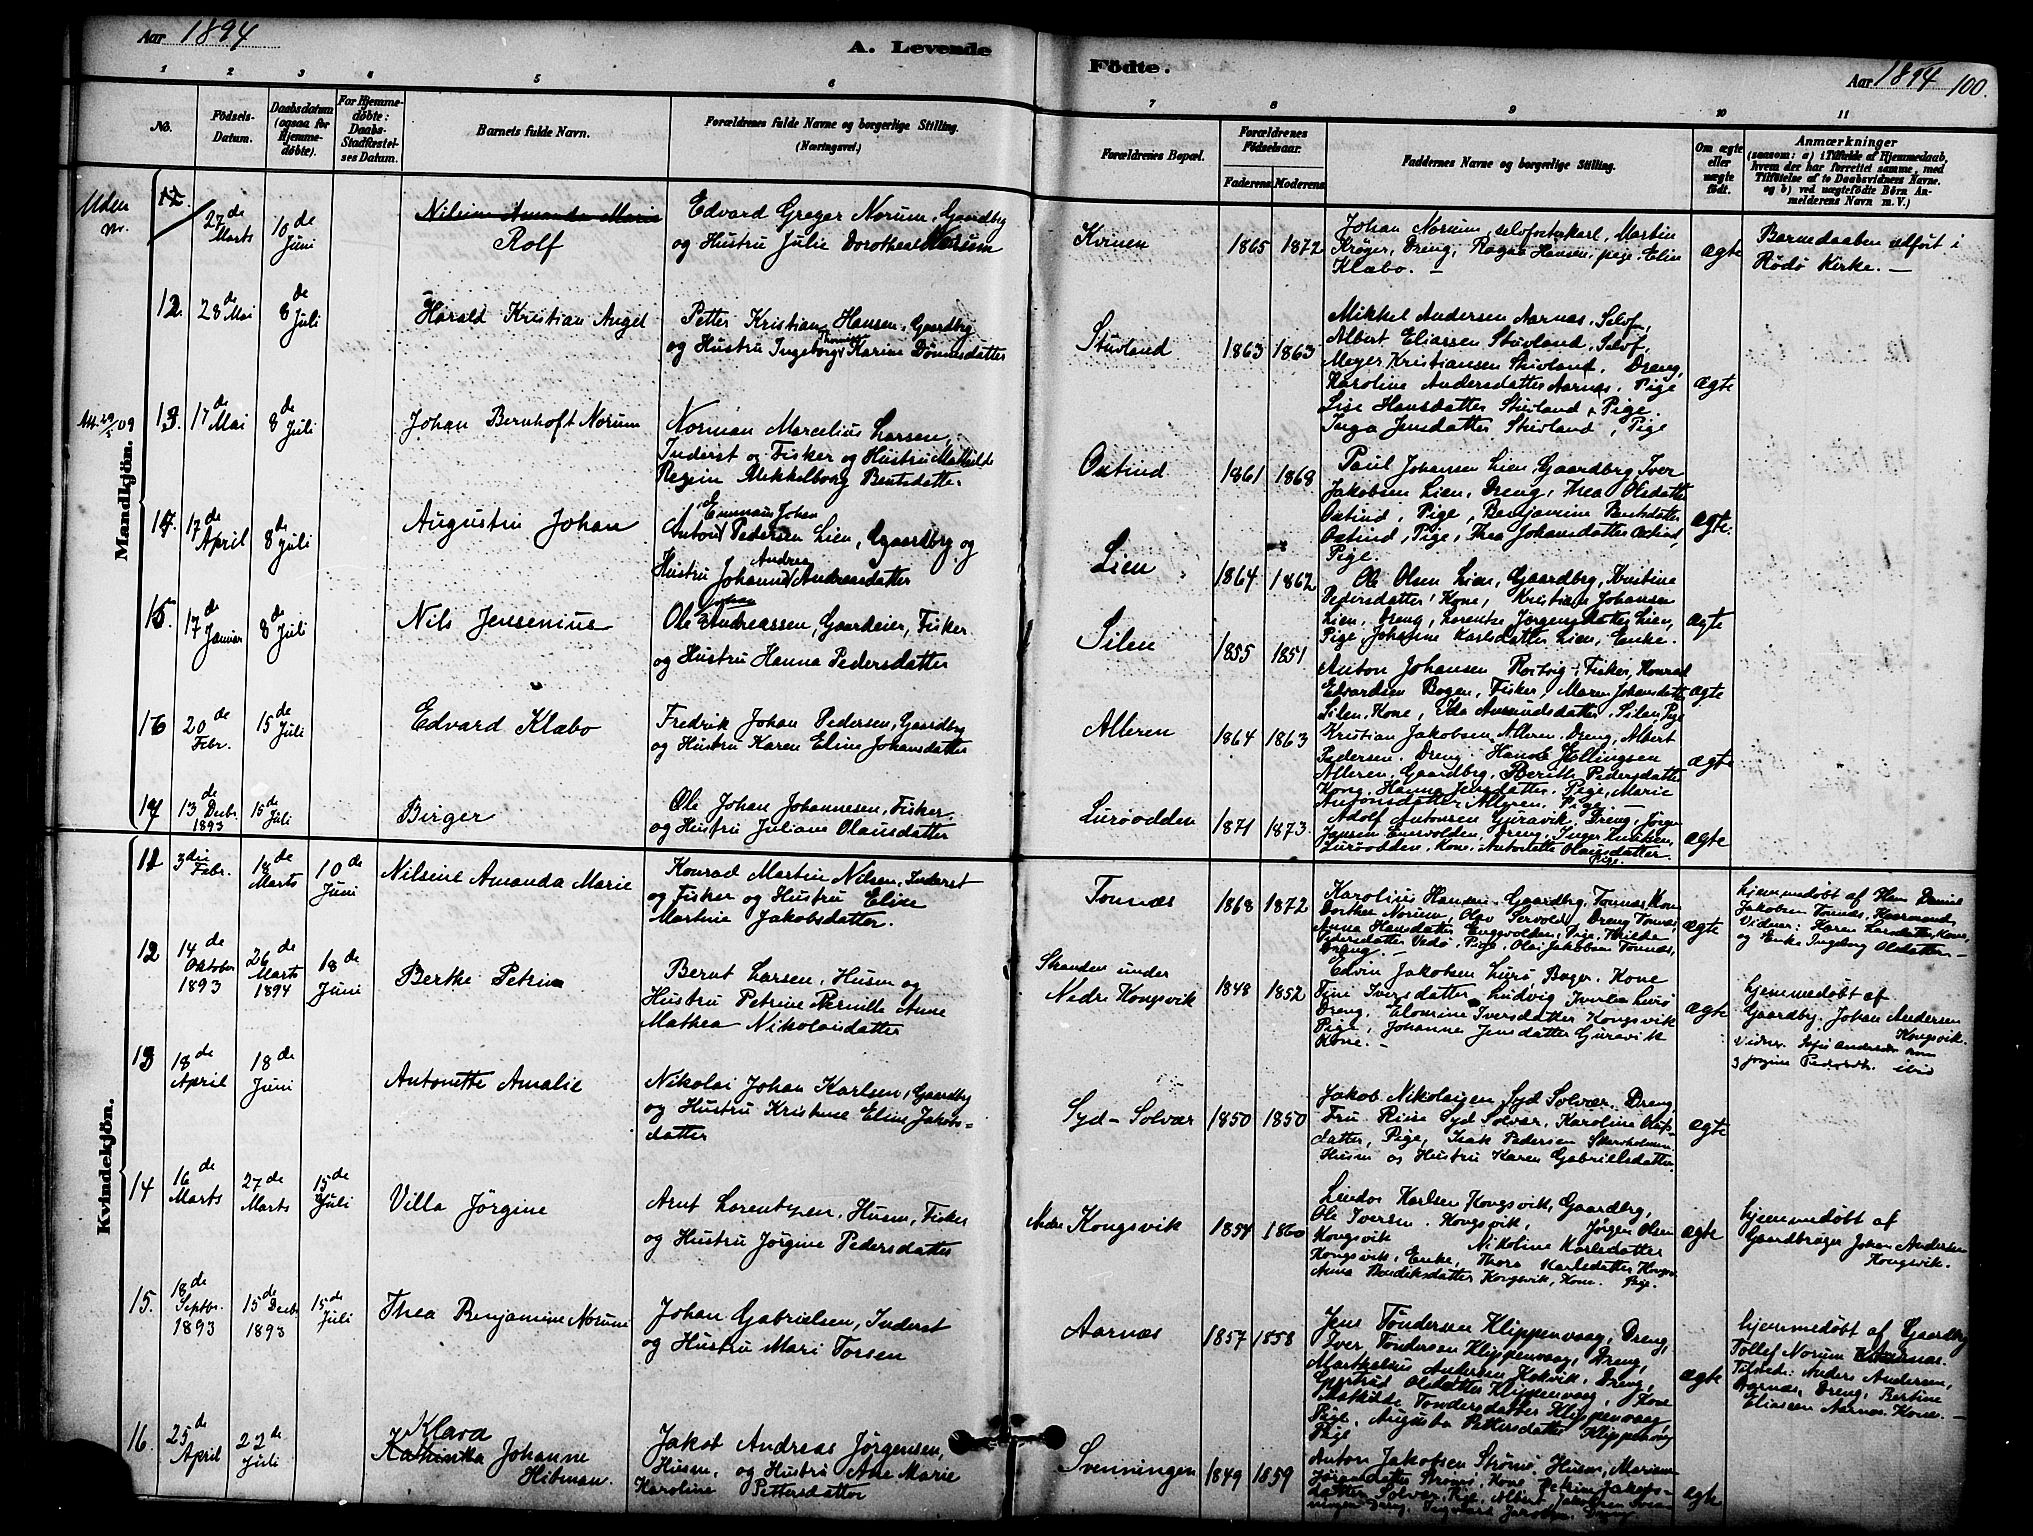 Aar 1894
A. Levende
Födte.
Aar 1894 100.
1 2 3 4 5 6 7 8 9 10 11
No.
Födsels-Datum.
Daabsdatum (ogsaa for Hjemme-døbte).
For Hjemme-døbte: Daabs-Stadfæstel-ses Datum.
Barnets fulde Navn.
Forældrenes fulde Navne og borgerlige Stilling. (Næringsvei.)
Forældrenes Bopæl.
Forældrenes Födselsaar.
Faderens. Moderens.
Faddernes Navne og borgerlige Stilling.
Om ægte eller uægte födt.
Anmærkninger
(saasom: a) i Tilfælde af Hjemmedaab, hvem der har forrettet samme, med Tilföielse af to Daabsvidners Navne. og b) ved uægtefödte Børn An-melderens Navn m. V.)
Mandkjön.
Uden nr.
27de Marts
10de Juni
Nilsine Amanda Marie
Rolf
Edvard Greger Norum, Gaardbg
og Hustru Julie Dorothea Norum
Kvinen
1865 1872
Johan Norum, selvf. , Martin
Krøger, Dreng, Ragna Hansen, pige, Elin
Klæbo. –
ægte
Barnedaaben udført i
Rødø Kirke. –
12. 28de Mai
8de Juli
Harald Kristian Angel
Petter Kristian Hansen, Gaardbg
og Hustru Ingeborg Karine Dønnesdatter
Stuvland
1863 1863
Mikkel Andersen Aarnæs, Selvf,
Albert Eliassen Stuvland, Selvf,
Meyer Kristiansen Stuvland, Dreng,
Karoline Andersdatter Aarnæs, Pige
Lise Hansdatter Stuvland, Pige.
Inga Jensdatter Stuvland, Pige
ægte
Att. 29/5 09
13. 17de Mai
8de Juli
Johan Bernhoft Norum
Norman Marcelius Larsen,
Inderst og Fisker og Hustru Mathilde
Regine Mekkelborg Bentsdatter
Oxtind
1861 1868
Paul Johansen Lien Gaardbrg Iver
Jakobsen Lien, Dreng, Thea Olsdatter
Oxtind, Pige, Benjamine Bentsdatter
Oxtind, Pige, Thea Johansdatter Oxtind,
Pige.
ægte.
14. 17de April
8de Juli
Augustin Johan
Emmaus Johan
Anton Pedersen Lien, Gaardbg og
Andrea
Hustru Johanna Andreasdatter
Lien
1864 1862
Ole Olsen Lien, Gaardbg, Kristine
Pedersdatter, Kone, Kristian Johansen
Lien, Dreng, Lorentse Jørgensdatter Lien,
Pige Johanne Karlsdatter Lien, Enke.
ægte
15. 17de Januar
8de Juli
Nils Jensenius
Johan
Ole Andreassen, Gaardeier, Fisker
og Hustru Hanna Pedersdatter
Silen
1855 1851
Anton Johansen Rosvig, Fisker, Konrad
Edvardsen Bogen, Fisker, Maren Johansdatter
Silen, Kone, Ida Amundsdatter, Silen, Pige
ægte
16 20de Febr.
15de Juli
Edvard Klæbo
Fredrik Johan Pedersen, Gaardbg
og Hustru Karen Eline Johansdatter
Alleren
1864 1863
Kristian Jakobsen Alleren, Dreng, Albert
Pedersen, Dreng, Hans Ellingsen
Alleren, Gaardbg, Berith Pedersdatter
Kone, Hanna Jensdatter, Pige, Marie
Antonsdatter, Alleren, Pige. –
ægte
17 13de Decbr. 1893
15de Juli
Birger
Ole Johan Johannesen, Fisker
og Hustru Juliane Olausdatter
Lurøodden
1871 1873
Adolf Antonsen Guravik, Dreng, Jørgen
Jansen Engvolden, Dreng, Inger Knudsen,
Lurøodden, Kone, Antonette Olausdatter
Pige.
ægte
Kvindekjön.
11 3die Febr.
18de Marts
10de Juni
Nilsine Amanda Marie
Konrad Martin Nilsen, Inderst
og Fisker og Hustru Elise
Martine Jakobsdatter.
Tonnæs
1868 1872
Karolius Hansen, Gaardbg, Tonnæs, Kone
Dorthea Norum, Olav Servold, Dreng Tonnæs,
Anna Hansdatter Engvolden, Pige, Hilda
Pedersdatter Vedø, Pige, Olai Jakobsen Tonnæs,
Dreng. –
ægte
hjemmedøbt af Hans Daniel
Jakobsen Tonnæs, Kaarmand,
Vidner: Karen Larsdatter, Kone,
og Enke Ingeborg Olsdatter. –
12 14de Oktober 1893
26de Marts 1894
18de Juni
Berthe Petrine
Bernt Larsen, Husm og
Hustru Petrine Pernille Anne
Mathea Nikolaisdatter
Stranden under
Nedre Kongsvik
1848 1852
Edvin Jakobsen Lurø, Bager, Kone
Fine Iversdatter, Ludvig Iversen Lurø
Dreng, Elourine Iversdatter Kongsvik
Pige, Johanne Jensdatter Guravik
Kone. –
ægte
hjemmedøbt af
Gaardbg. Johan Andersen
Kongsvik.
Vidner. Sofie Andersdr
Jørgine Pedersdtr. ibid
13 18de April
18de Juni
Antonette Amalie
Nikolai Johan Karlsen, Gaardbg
og Hustru Kristine Eline Jakobs-
datter
Syd-Solvær
1850 1850
Jakob Nikolaisen Syd Solvær, Dreng,
Fru Riise Syd Solvær, Karoline Olufs-
datter, Pige, Isak Pedersen Skarholmen
Husm og Hustru Karen Gabrielsdatter
ægte
14 16de Marts
27de Marts
15de Juli
Villa Jørgine
Arnt Lorentzen, Husm, Fisker
og Hustru Jørgine Pedersdatter
Nedre Kongsvik
1854 1860
Lindor Karlsen Kongsvik, Gaardbg,
Ole Iversen, Kongsvik, Jørgen Olsen
Kongsvik Nikoline Karlsdatter
Kongsvik, Enke, Thora Karlsdatter Kongsv.
Anna Bendiksdatter Kongsvik, Kone. Pige.
ægte
hjemmedøbt af
Gaardbruger Johan Andersen
Kongsvik.
15. 18de Septbr. 1893
15de Decbr 1893
15de Juli
Thea Benjamine Norum
Johan Gabrielsen, Inderst
og Hustru Mari Torsen
Aarnæs
1857 1858
Jens Tøndersen Klippenvaag, Dreng,
Iver Tøndersen Klippenvaag, Dreng,
Marthelius Andersen Kokvik, Dreng,
Gjertrud Olsdatter Klippenvaag, Kone
Mathilde Tøndersdatter Klippenvaag
Pige, Augusta Pettersdatter Klippenvaag
Pige
ægte
hjemmedøbt af Gaardbrg
Tollef Norum Aarnæs.
Tilsted: Anders Andersen,
Aarnæs, Dreng, Bertine
Eliassen Aarnæs, Kone. –
16. 25de April
22de Juli
Klara
Kathinka Johanne
Hitman.
Jakob Andreas Jørgensen,
Husm, og Hustru Ane Marie
Karoline Pettersdatter
Svenningen
1849 1859
Anton Jakobsen Strømø, Husm, Mariane
Jørgensdatter Strømø, Kone, Petrine Jakobs-
datter Solvær, Pige, Albert Jakobsen Sven-
ningen Dreng,
ægte